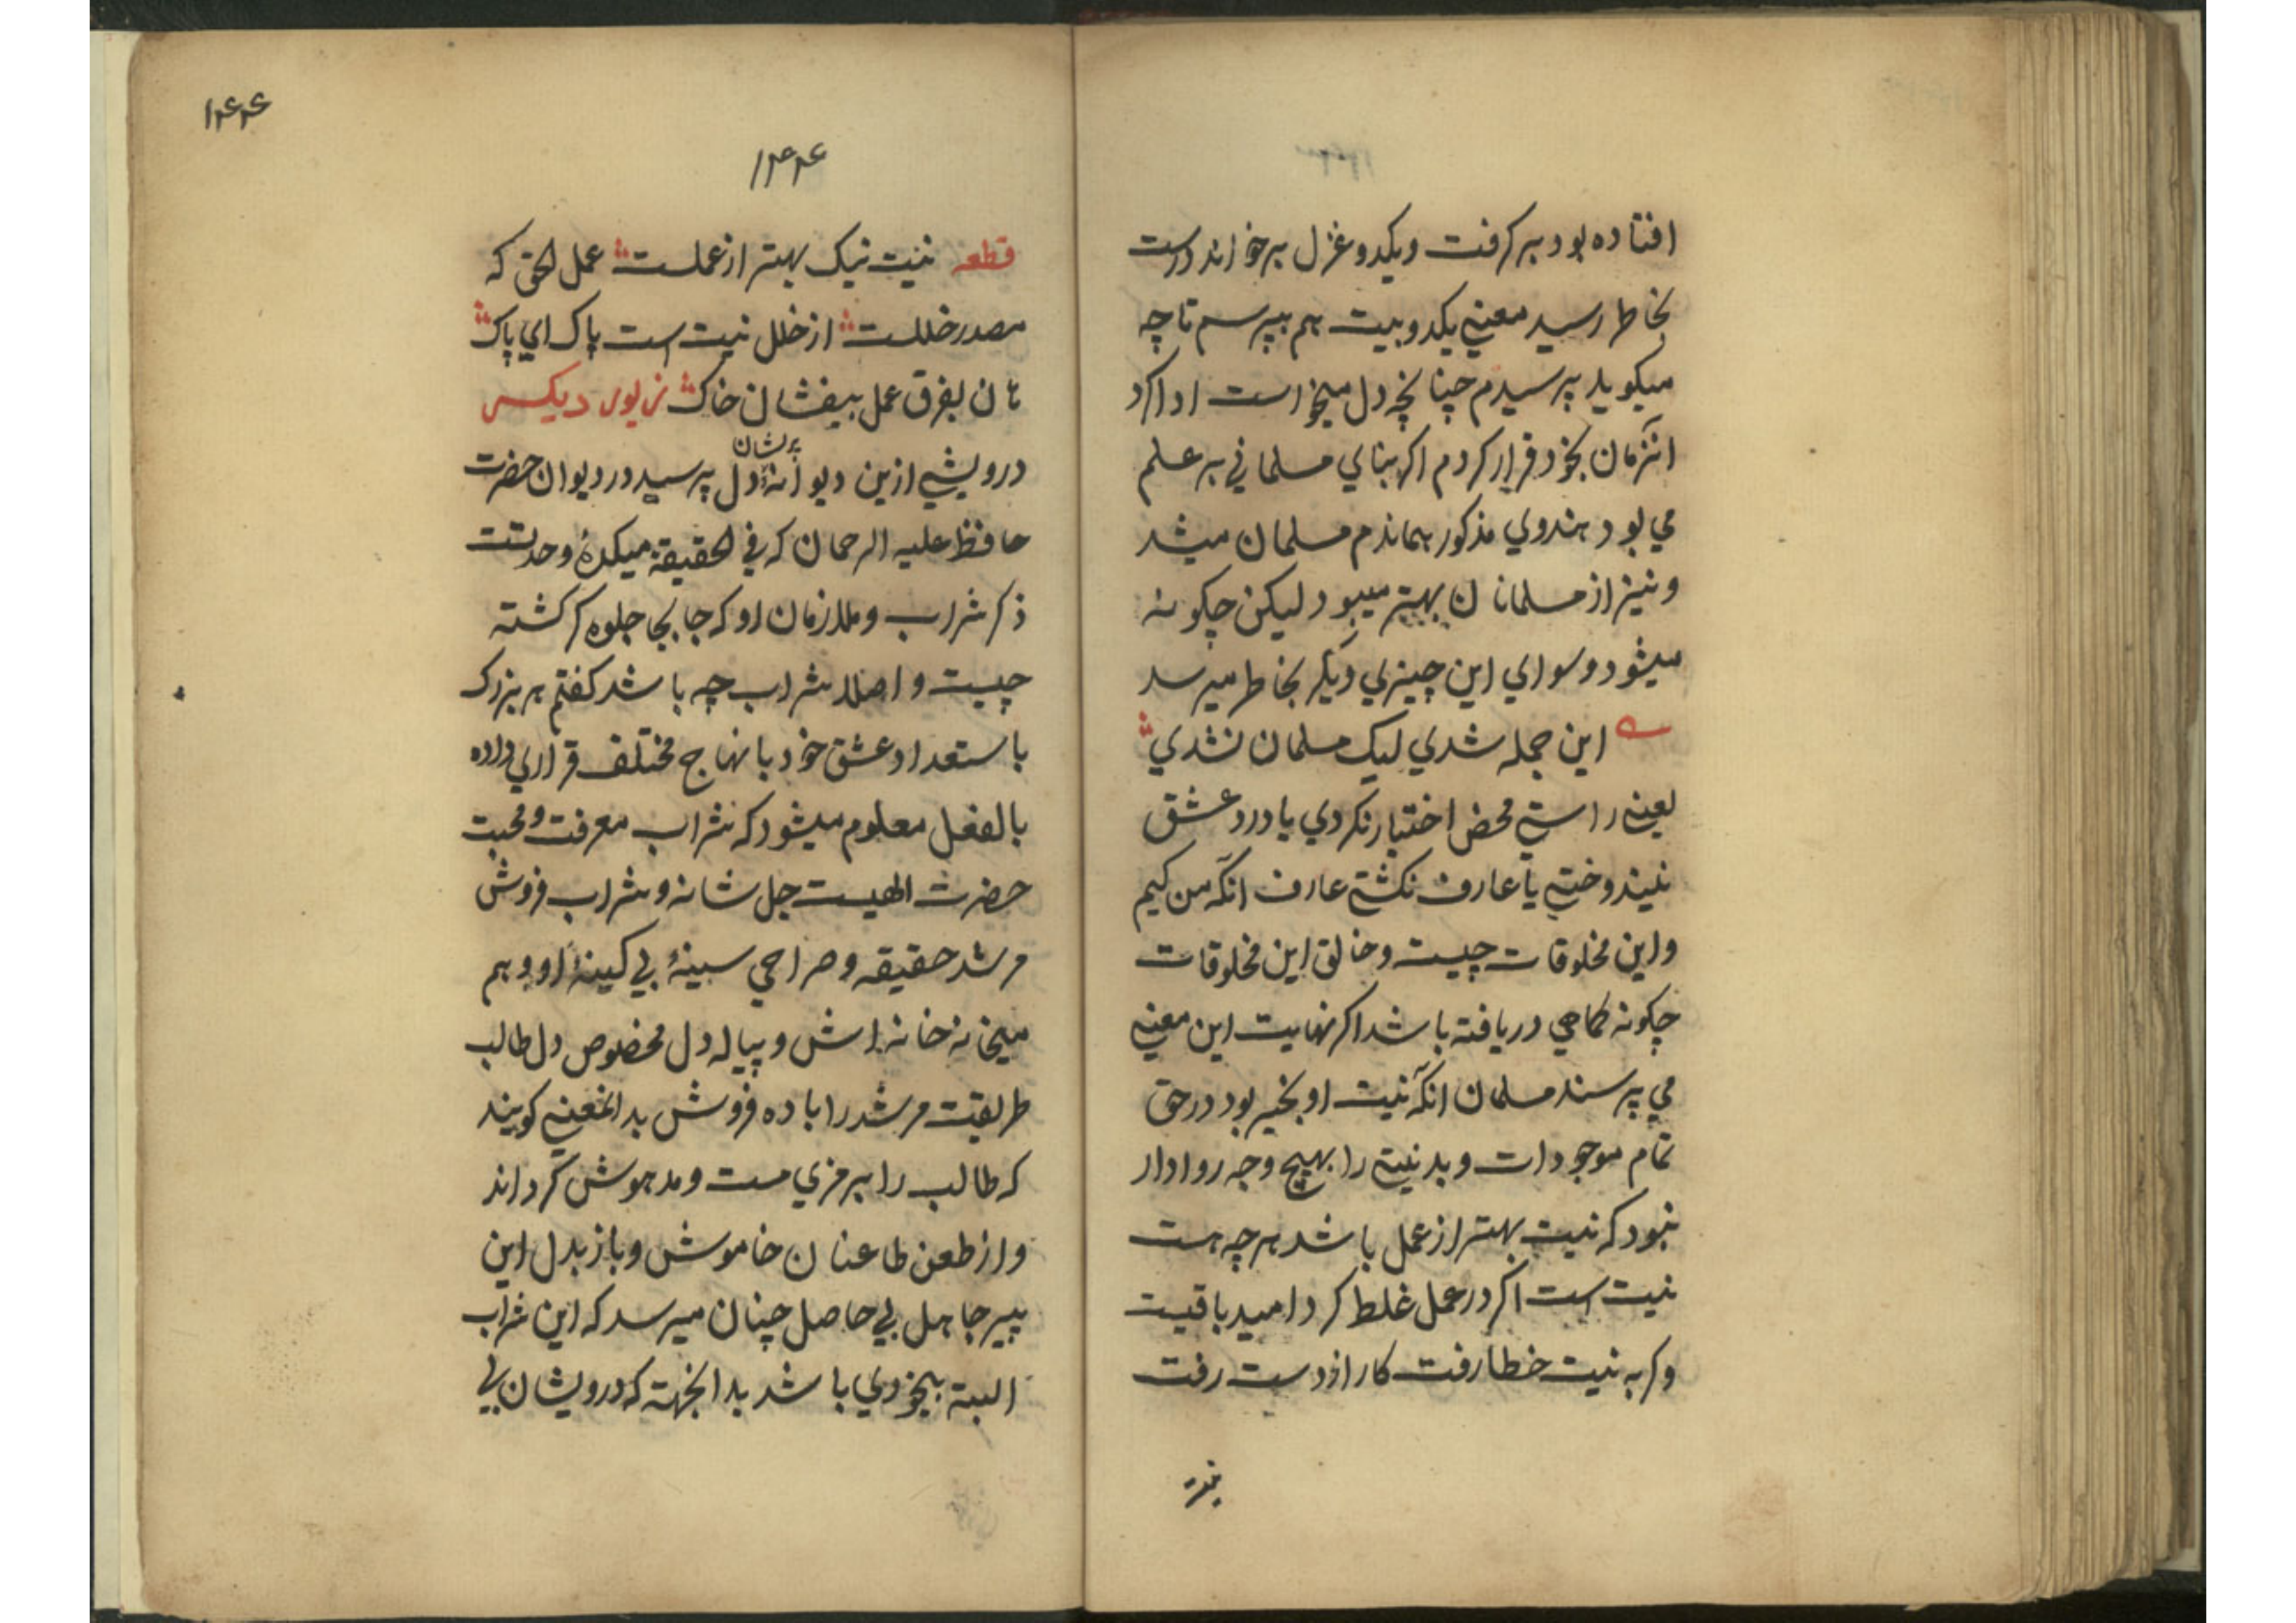 افتاده بود برگرفت و یکدو غزل برخواند درست
بخاطر رسید معنی یکدو بیت هم بپرسم تا چه
میکوید پرسیدم چنانچه دل میخواست ادا کرد
انزمان بخود قرار کردم اکر بنای مسلمانی بر علم
می بود هندوی مذکور بماندم مسلمان میشد
و نیز از مسلمانان بهتر میبود لیکن چکونه
میشود و سوای این چیزی دیگر بخاطر میرسد
این جمله شدی لیک مسلمان نشدی
یعنی راستی محض اختیار نکردی یا درد عشق
نیندوختی یا عارف نکشتی عارف آنکه من کیم
و این مخلوقات چیست و خالق این مخلوقات
چکونه کماهی دریافته باشد اکر نهایت این معنی
می پرسند مسلمان آنکه نیت او بخیر بود در حق
تمام موجودات و بد نیتی را بهیچ وجه روادار
نبود که نیت بهتر از عمل باشد هر چه هست
نیت است اکر در عمل غلط کرد امید باقیست
و کر به نیت خطا رفت کار از دست رفت
۱۴۴
۱۴۴
قطعه نیت نیک بهتر از عملست عمل الحق که
مصدر خللست از خلل نیت است پاک ای پاک
هان بفرق عمل بیفشان خاک زیور دیکر
درویشی ازین دیوانهٔ دل پرشان پرسید در دیوان حضرت
حافظ علیه الرحمان که فی الحقیقة میکدهٔ وحدتست
ذکر شراب و ملازمان او که جابجا جلوه کر کشته
چیست و اصلا شراب چه باشد کفتم هر بزرک
باستعداد عشق خود بانهاج مختلف قراری داده
بالفعل معلوم میشود که شراب معرفت و محبت
حضرت الهیست جل شانه و شراب فروش
مرشد حقیقه و صراحی سینهٔ بی کینهٔ او و هم
میخانه خانه اش و پیاله دل مخصوص دل طالب
طریقت مرشد را باده فروش بدانمعنی کویند
که طالب را برمزی مست و مدهوش کرداند
و از طعن طاعنان خاموش و باز بدل این
پیر جاهل بی حاصل چنان میرسد که این شراب
البته بیخودی باشد بدانجهته که درویشان بی